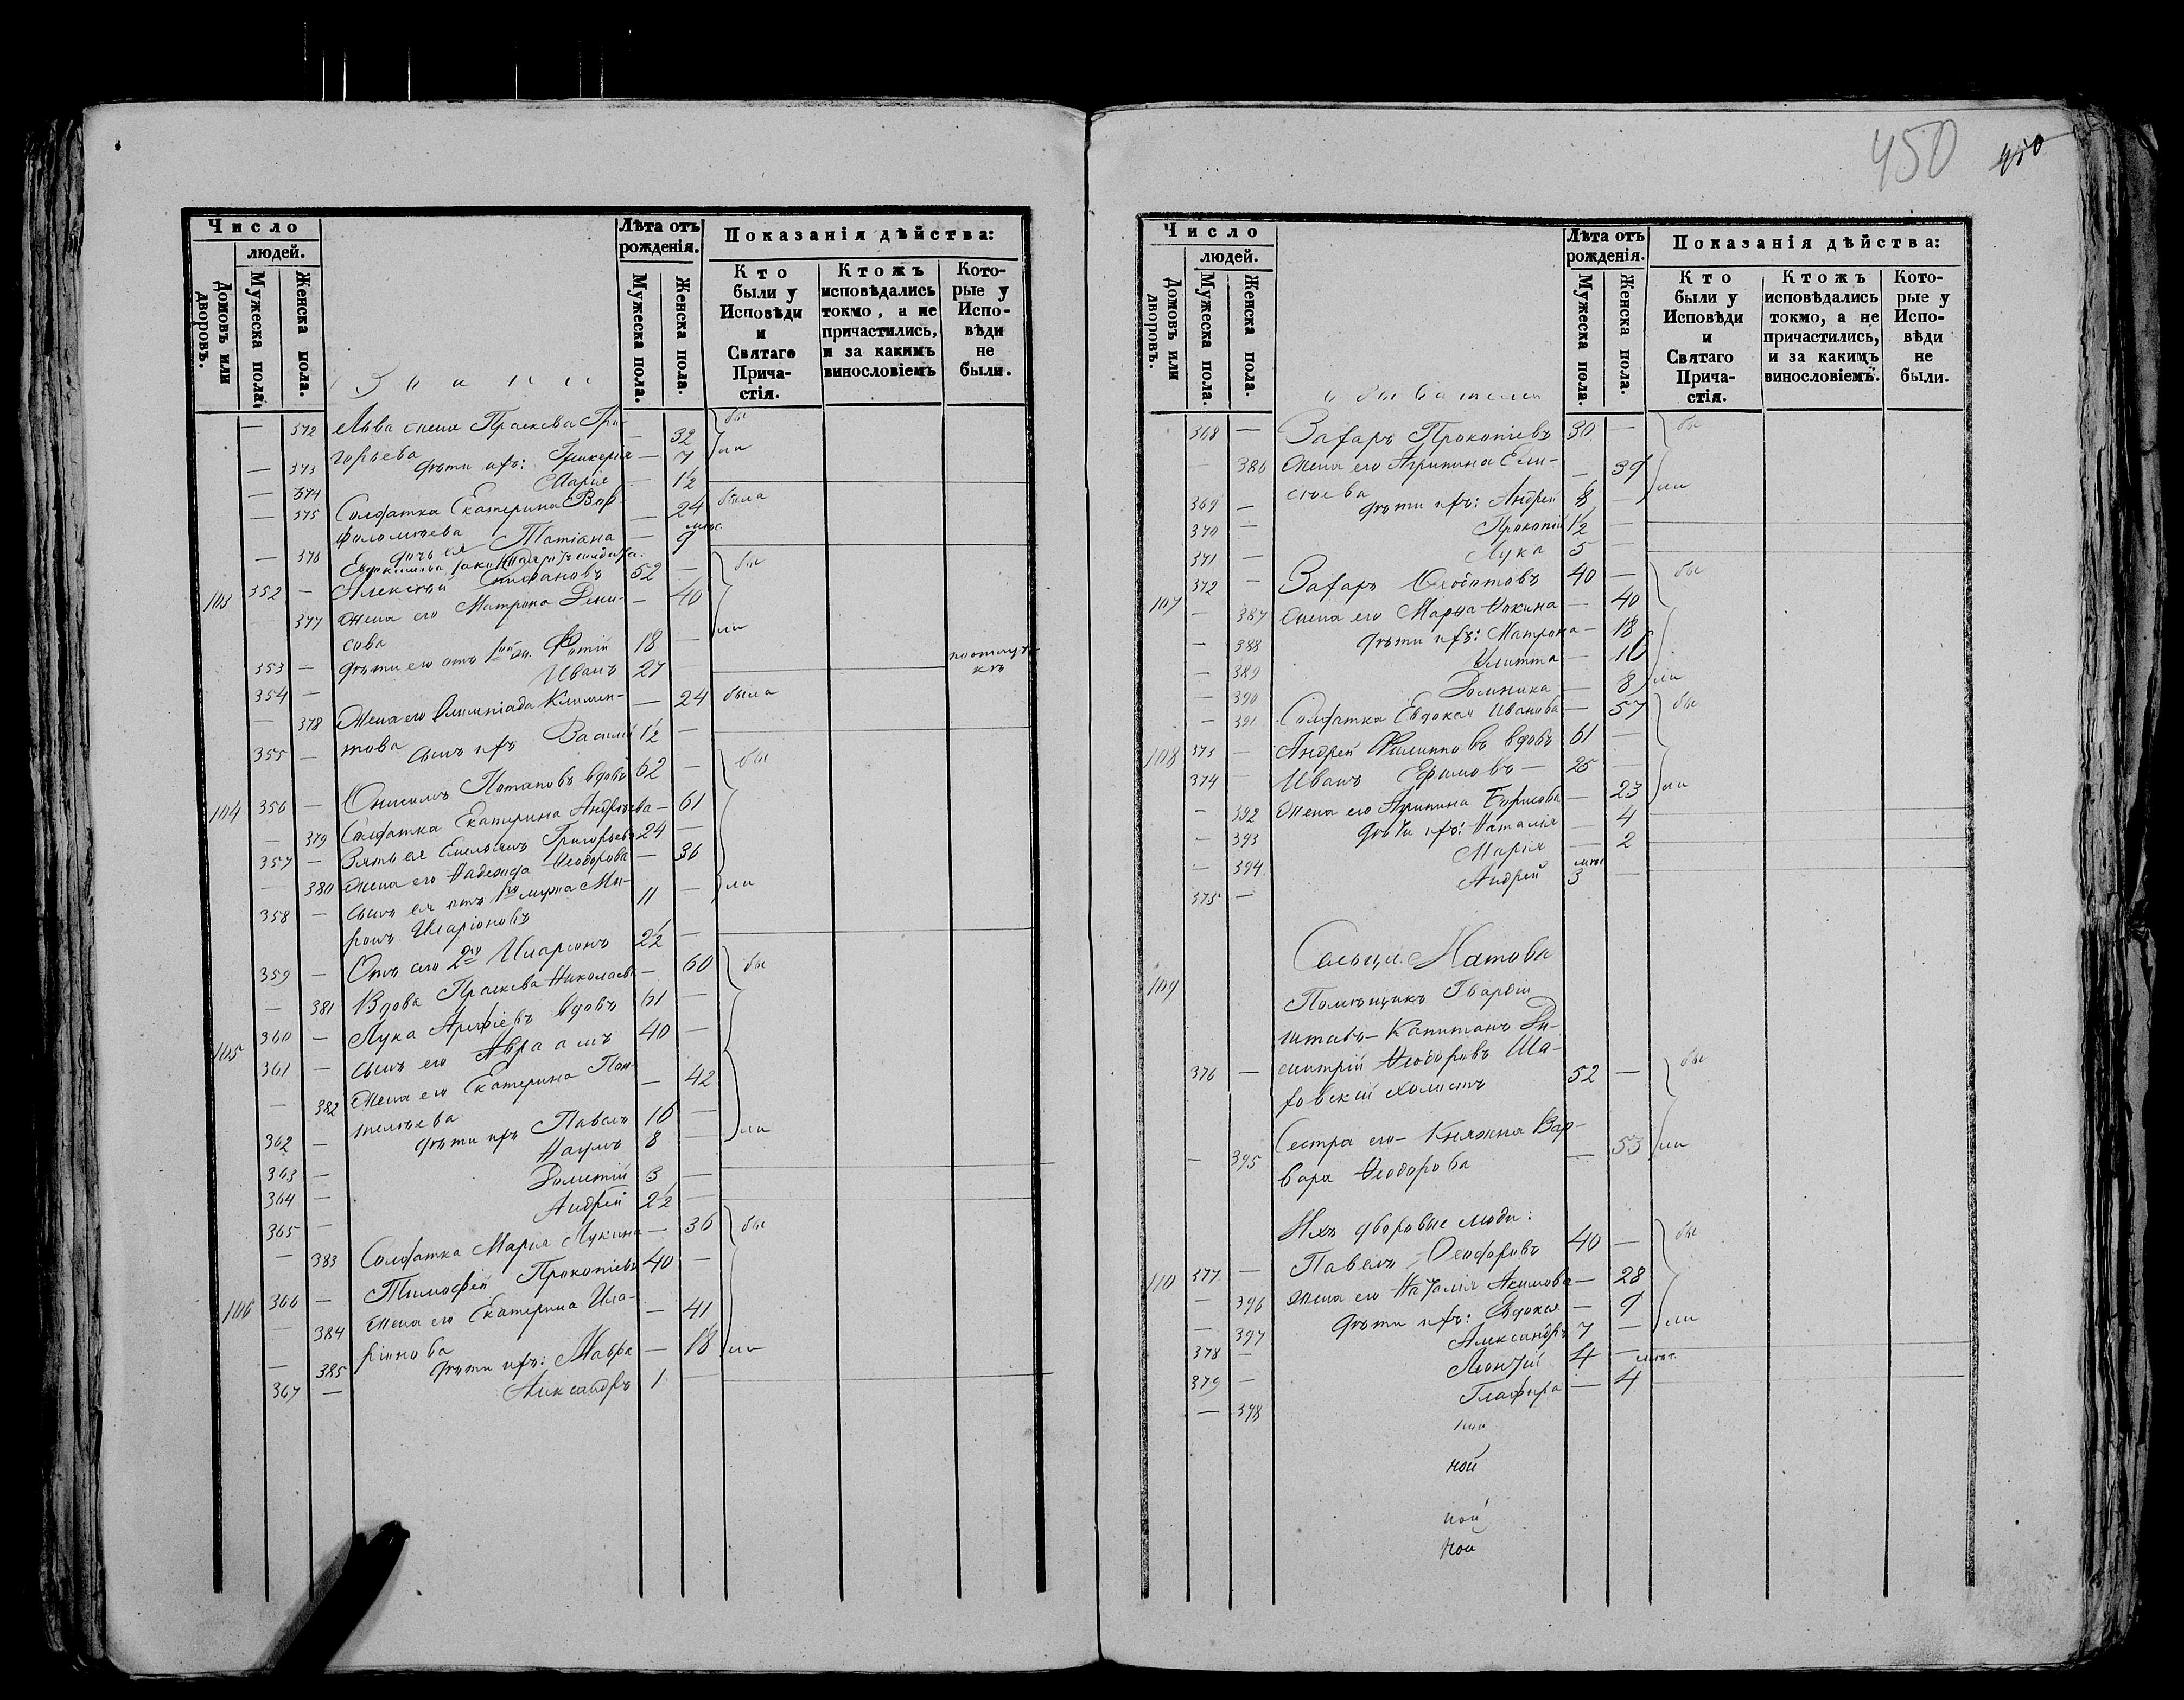 450 450
Число
людей.
Домовъ или дворовъ.
Мужеска пола.
Женска пола.
Лѣта отъ рожденія.
Мужеска пола.
Женска пола.
Показанія дѣйства:
Кто были у Исповѣди и Святаго Прича-стія.
Ктожъ исповѣдались токмо, а не причастились, и за какимъ винословіемъ
Кото-рые у Испо-вѣди не были.
372 Льва жена Праскева Гри- — 32 бы
373 горьева дѣти ихъ: Гликерія — 7 ли
374 Марія — 1/2
375 Солдатка Екатерина Вар- — 24 была
фоломѣева мѣс.
376 дочь ея Татіана — 9
103 352 — Алексѣй Стифановъ 52 — бы
377 Жена его Матрона Дени- — 40
сова ли
353 — дѣти его отъ Фотій 18 —
354 — Иванъ 27 —
378 Жена его Олимпіада Климен- — 24 была
355 — това сынъ ихъ Василій 1/2 —
104 356 — Онисимъ Потаповъ вдовъ 62 — бы
— 379 Солдатка Екатерина Андрѣева — 61
357 — Зять ея Емельянъ Григорьевъ 24 —
380 Жена его Надежда Ѳеодорова — 36
358 — сынъ ея отъ 1го мужа Ми- 11 — ли
ронъ Иларіоновъ
359 — Отъ сего 2го Иларіонъ 2 1/2 —
— 381 Вдова Праскева Николаева — 60 бы
105 360 — Лука Арефіевъ вдовъ 61 —
361 — сынъ его Авраамъ 40 —
— 382 Жена его Екатерина Пан- — 42
телѣева
362 — дѣти ихъ Павелъ 16 —
363 — Наумъ 8 — ли
364 — Дометій 3 —
365 — Андрей 2 1/2 —
— 383 Солдатка Марія Лукина — 36 бы
106 366 — Тимофей Прокопіевъ 40 —
— 384 Жена его Екатерина Ила- — 41
ріонова
— 385 дѣти ихъ: Мавра — 18 ли
367 — Александръ 1 —
Число
людей.
Домовъ или дворовъ.
Мужеска пола.
Женска пола.
Лѣта отъ рожденія.
Мужеска пола.
Женска пола.
Показанія дѣйства:
Кто были у Исповѣди и Святаго Прича-стія.
Ктожъ исповѣдались токмо, а не причастились, и за какимъ винословіемъ.
Кото-рые у Испо-вѣди не были.
368 — Захаръ Прокопіевъ 30 — бы
— 386 Жена его Агрипина Ели- — 39
сѣева
369 — дѣти ихъ: Андрей 8 — ли
370 — Прокопій 1/2 —
371 — Лука 5 —
107 372 — Захаръ Ѳеодотовъ 40 — бы
— 387 Жена его Марѳа Фокина — 40
— 388 дѣти ихъ: Матрона — 18
— 389 Улитта — 10
— 390 Домника — 8 ли
— 391 Солдатка Евдокея Иванова — 57 бы
108 373 — Андрей Филипповъ вдовъ 61 —
374 — Иванъ Ефимовъ — 25 —
— 392 Жена его Агрипина Борисова — 23 ли
— 393 дѣти ихъ: Наталія — 4
— 394 Марія — 2
мѣс
375 — Андрей 3 —
Сельца Матова
109 Помѣщикъ Гвардіи
штабъ-Капитанъ Ди-
376 — митрій Ѳеодоровъ Ша- 52 — бы
ховскій холостъ
— 395 Сестра его — Княжна Вар- — 53 ли
вара Ѳеодорова
Ихъ дворовые люди:
110 377 — Павелъ Ѳеодоровъ 40 — бы
— 396 Жена его Наталія Акимова — 28
— 397 дѣти ихъ: Евдокея — 9
378 — Александръ 7 — ли
379 — Леонтій 4 —
мѣс.
— 398 Глафира — 4
ной
ной
ной